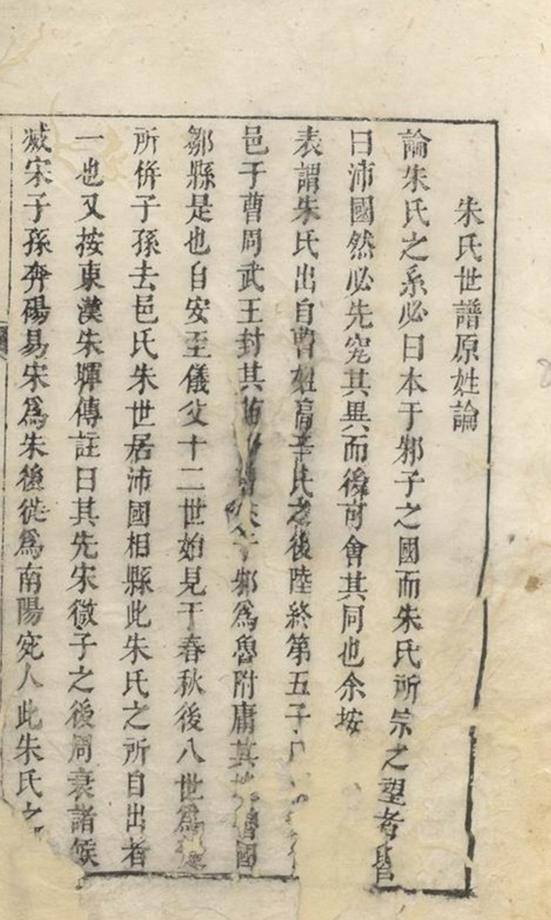 朱氏世譜原姓論
論朱氏之系必曰本于邾子之國而朱氏所宗之望者皆
曰沛國然必先究其異而後可會其同也余按
表謂朱氏出自曹姓高辛氏之後陸終第五子
邑于曹周武王封其于邾爲魯附庸其國
鄒縣是也自安至儀父十二世始見于春秋後八世爲
所併子孫去邑氏朱世居沛國相縣此朱氏之所自出者
一也又按東漢朱暉傳註曰其先宋微子之後周衰諸侯
滅宋子孫奔碭易宋爲朱後徙爲南陽宛人此朱氏之